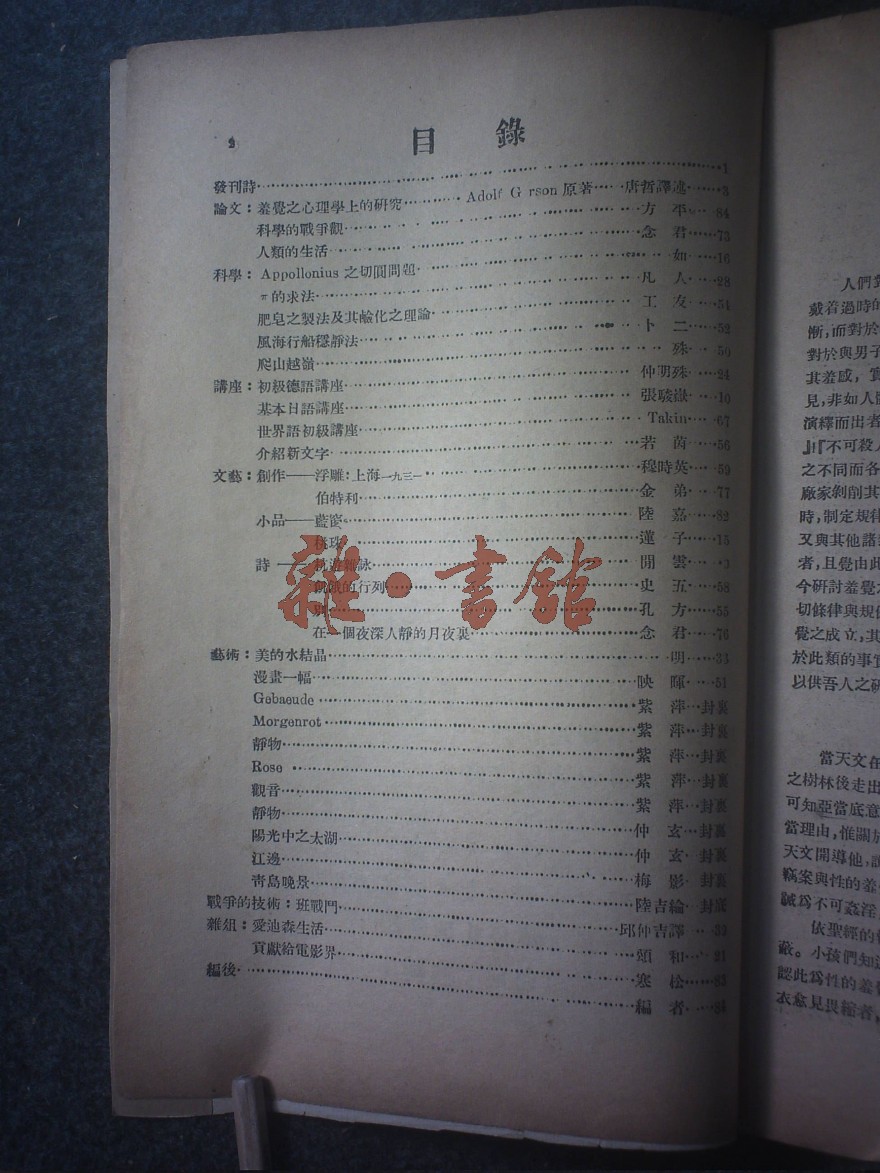 2
目錄
發刊詩……1
論文：羞覺之心理學上的研究……Adolf G rson 原著……唐哲譯述……3
科學的戰爭觀……方 平……84
人類的生活……念 君……73
科學：Appollonius 之切圓問題……如……16
π的求法……凡 人……28
肥皂之製法及其鹼化之理論……工 友……54
風海行船穩靜法……卜 二……52
爬山越嶺……殊……50
講座：初級德語講座……仲明殊……24
基本日語講座……張駿嶽……10
世界語初級講座……Takin……67
介紹新文字……若 茵……56
文藝：創作——浮雕：上海一九三一……穆時英……59
伯特利……金 弟……77
小品——藍窗……陸 嘉……82
珠……蓮 子……15
詩——詠……閒 雲……3
的行列……史 五……58
別……孔 方……55
在一個夜深人靜的月夜裏……念 君……76
藝術：美的水結晶……明……33
漫畫一幅……映 暉……51
Gebaeude……紫 萍……封裏
Morgenrot……紫 萍……封裏
靜物……紫 萍……封裏
Rose……紫 萍……封裏
觀音……紫 萍……封裏
靜物……仲 玄……封裏
陽光中之太湖……仲 玄……封裏
江邊……梅 影……封裏
青島晚景……陸吉綸……封底
戰爭的技術：班戰鬥……邱仲吉譯……32
雜俎：愛迪森生活……頌 和……21
貢獻給電影界……寒 松……83
編後……編 者……84
雜·書館
人們
戴着過時的
慚，而對於
對於與男子
其羞感，實
見，非如人
演繹而出者
』『不可殺人
之不同而各
廠家剝削其
時，制定規律
又與其他諸
者，且覺由此
今研討羞覺
切條律與規
覺之成立，其
於此類的事實
以供吾人之研
當天文在
之樹林後走出
可知亞當底意
當理由，惟關於
天文開導他，
竊案與性的羞
誡爲不可姦淫，
依聖經的
蔽。小孩們知
認此爲性的羞
衣愈見畏縮者，